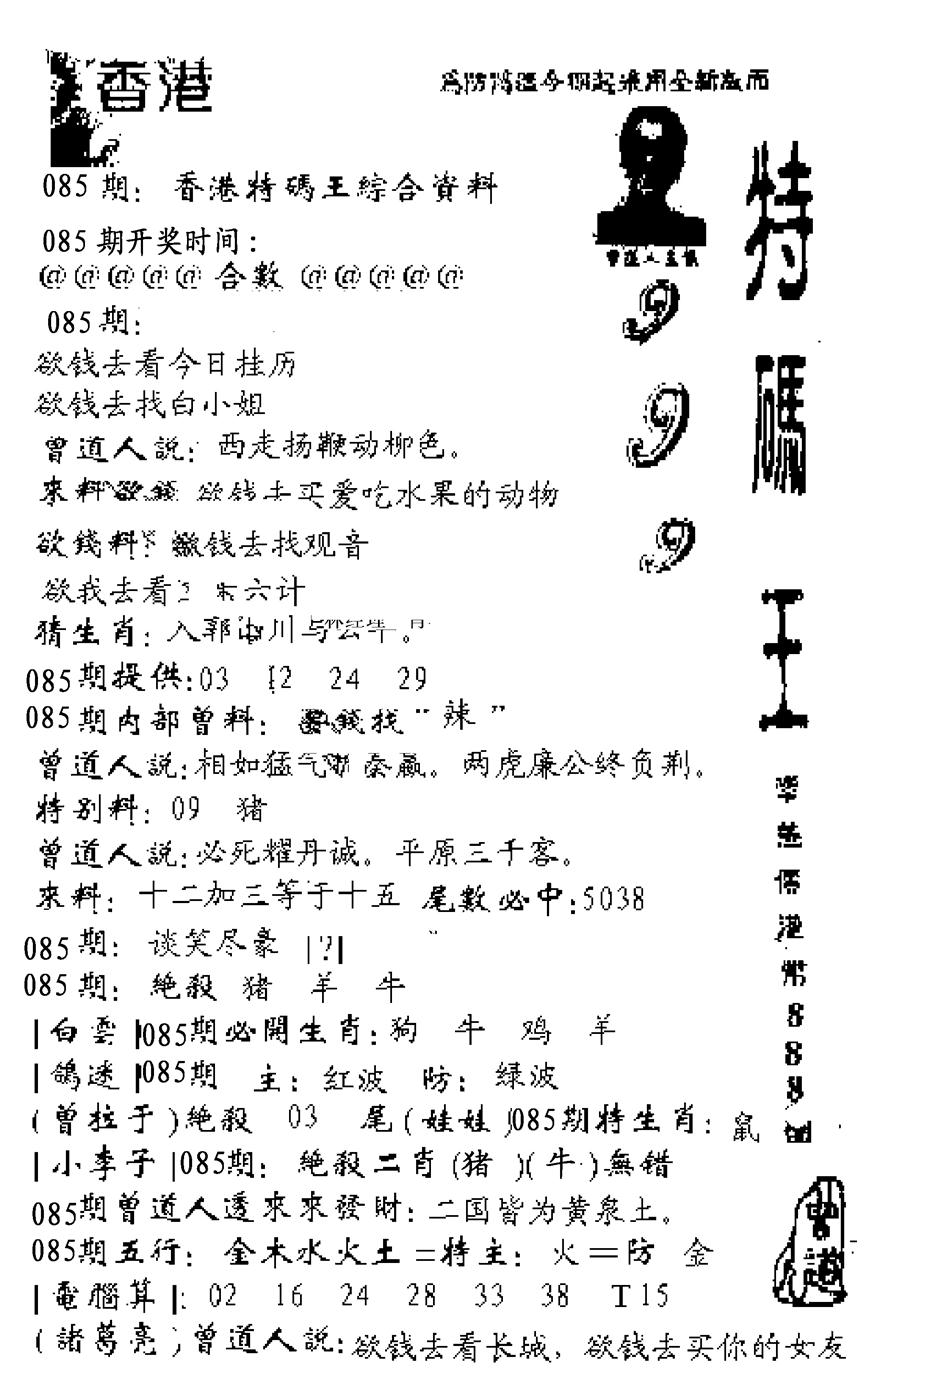 香港
085期：香港特碼王綜合資料
085期开奖时间：
@@@@@合數@@@@@
085期：
欲钱去看今日挂历
欲钱去找白小姐
曾道人説：西走扬鞭动柳色。
來料 欲钱去买爱吃水果的动物
欲錢料：钱去找观音
欲我去看 六计
猜生肖：入郭 川与
085期提供：03 12 24 29
085期内部曾料：錢找“辣”
曾道人説：相如猛气 秦赢。两虎廉公终负荆。
特别料：09 猪
曾道人説：必死耀丹诚。平原三千客。
來料：十二加三等于十五 尾數必中：5038
085期：谈笑尽豪|?|
085期：絶殺 猪 羊 牛
|白雲|085期必開生肖：狗 牛 鸡 羊
|鴿迷|085期 主：红波 防：绿波
(曾拉于)絶殺 03 尾(娃娃)085期特生肖：鼠
|小李子|085期：絶殺二肖(猪)(牛)無错
085期曾道人透來來發財：二国皆为黄泉土。
085期五行：金木水火土=特主：火=防 金
|電腦算|：02 16 24 28 33 38 T15
(諸葛亮)曾道人説：欲钱去看长城，欲钱去买你的女友
特碼王
999
888
曾道